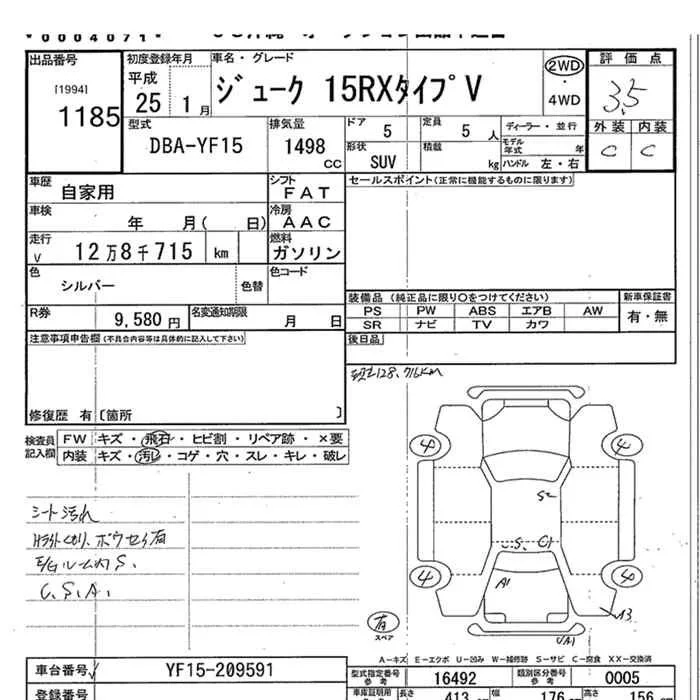 V 0 0 0 4 0 7 1 V
出品番号
[1994]
1185
初度登録年月
平成
25 1月
車名・グレード
ジューク 15RXタイプV
2WD
4WD
評価点
3.5
外装 内装
C C
型式
DBA-YF15
排気量
1498
CC
ドア 5
定員 5 人
形状
SUV
積載 kg
ディーラー・並行
モデル年式 年
ハンドル 左・右
車歴
自家用
シフト
FAT
セールスポイント(正常に機能するものに限ります)
車検
年 月( 日)
冷房
AAC
走行
V 12万8千715 km
燃料
ガソリン
色
シルバー
色替
色コード
装備品 (純正品に限り○をつけてください)
新車保証書
PS PW ABS エアB AW
有・無
SR ナビ TV カワ
R券
9,580 円
名変通知期限
月 日
後日品
注意事項申告欄(不具合内容等は具体的に記入して下さい)
現走128,716km
修復歴 有〔箇所 〕
検査員記入欄
FW キズ・飛石・ヒビ割・リペア跡・×要
内装 キズ・汚レ・コゲ・穴・スレ・キレ・破レ
シート汚れ
E/Gルーム内S.
C.S.A.
4 4
S2
C.S、C1
A1
4 4
A3
有
スペア
A-キズ E-エクボ U-凹み W-補修跡 S-サビ C-腐食 XX-交換済
車台番号 YF15-209591
型式指定番号
参考
16492
類別区分番号
参考
0005
登録番号
車庫証明用
参考
長さ 413 cm
幅 176 cm
高さ 156 cm